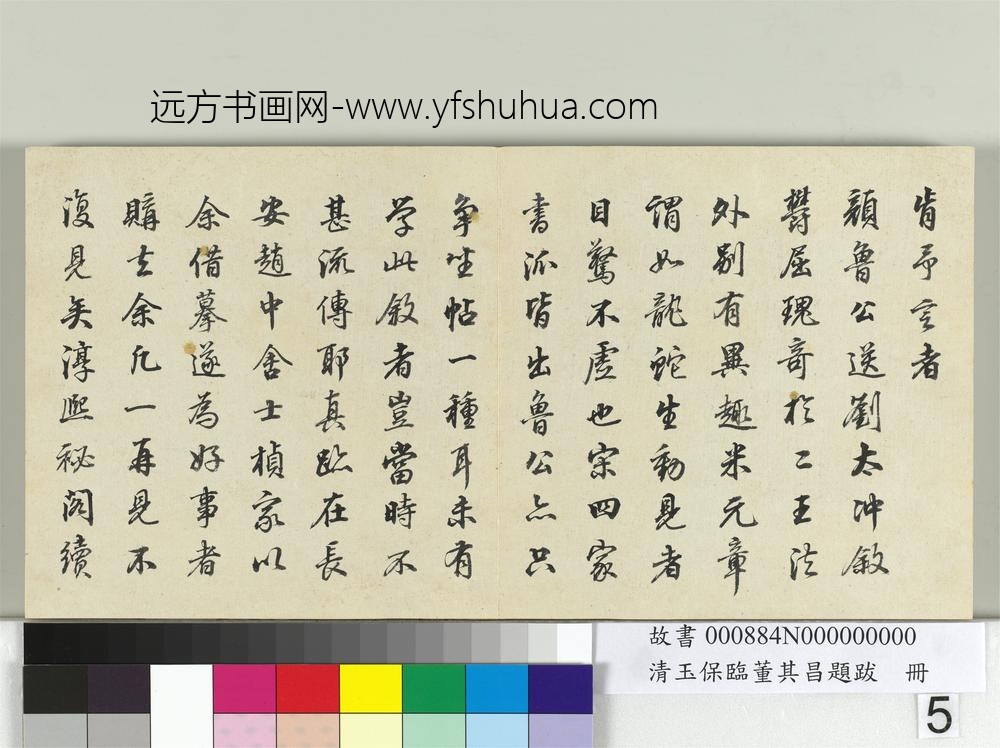 远方书画网-www.yfshuhua.com
肯予言者
顏魯公送劉太冲敘
鬱屈瑰奇於二王法
外別有異趣米元章
謂如龍蛇生動見者
目驚不虛也宋四家
書派皆出魯公亦只
爭坐帖一種耳未有
学此敘者豈當時不
甚流傳耶真跡在長
安趙中舍士楨家以
余借摹遂為好事者
購去余凡一再見不
復見矣淳熙秘閣續
故書 000884N000000000
清玉保臨董其昌題跋 冊
5